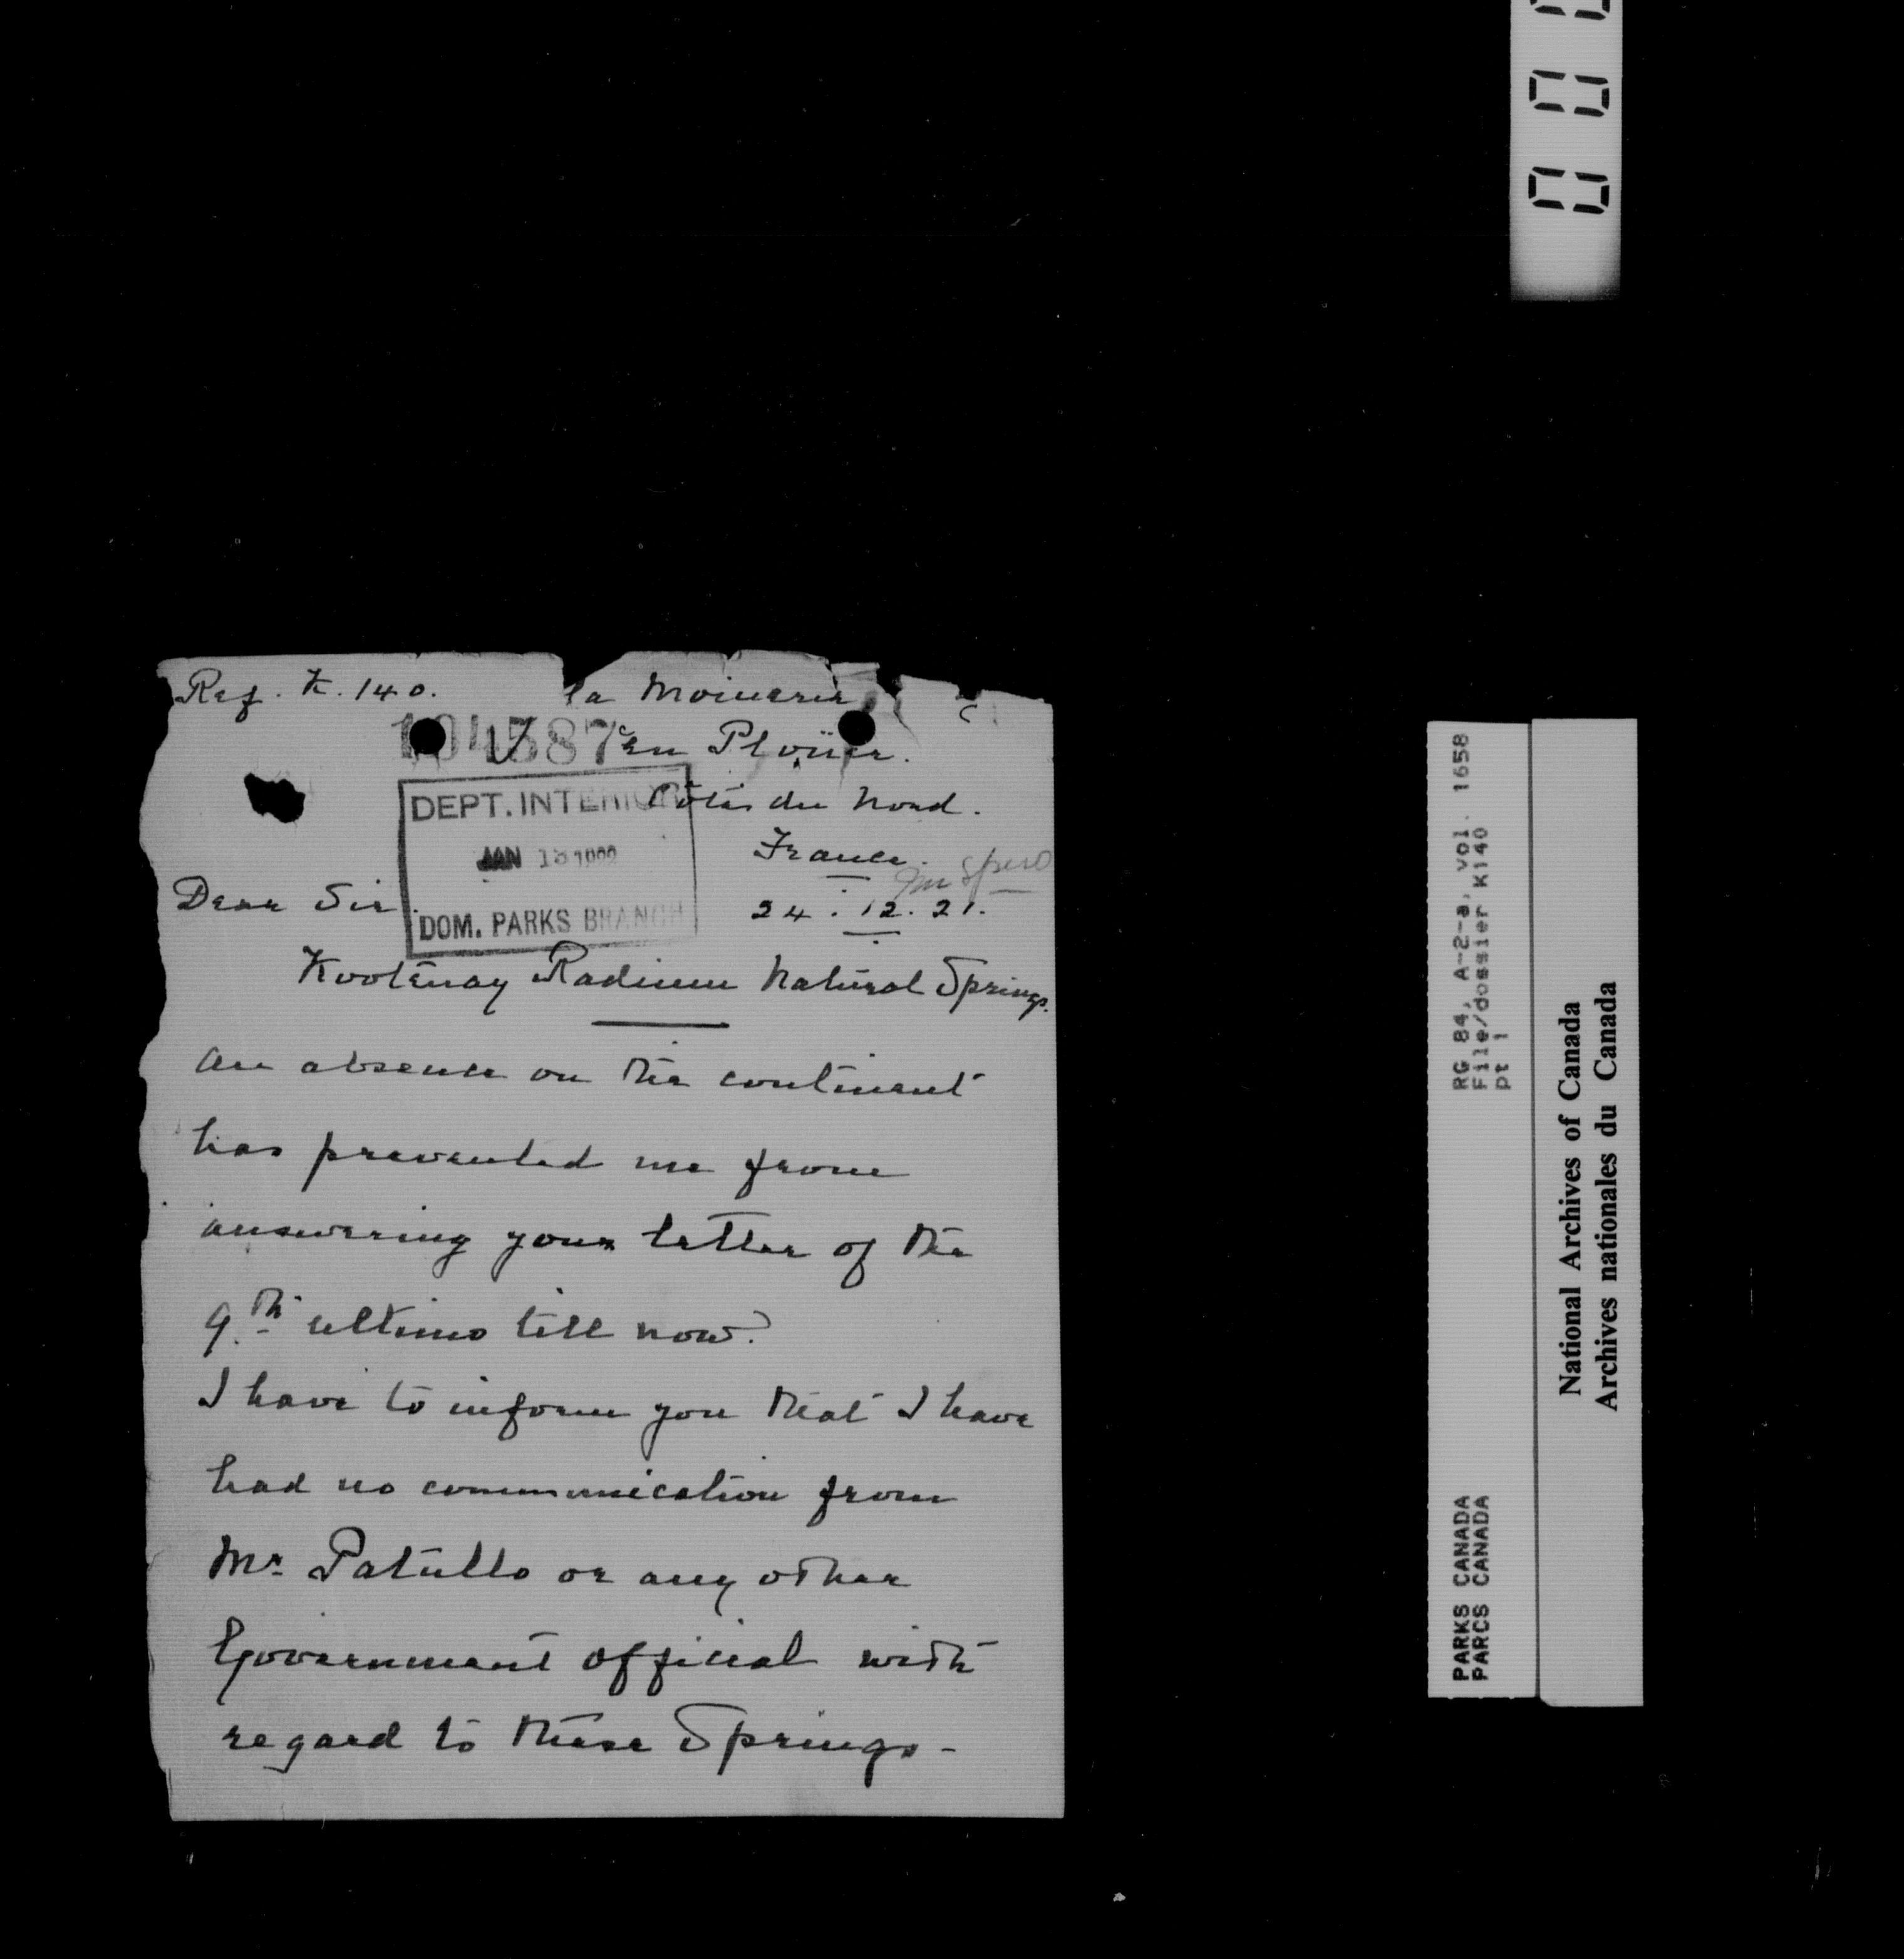 Ref. K. 140.
la Moinerie
104587
en Ploüer.
Côtes du Nord.
DEPT. INTERIOR
JAN 13 1922
DOM. PARKS BRANCH
France.
Mr Spero
24.12.21.
Dear Sir.
Kootenay Radium Natural Springs.
An absence on the continent
has prevented me from
answering your letter of the
9th ultimo till now.
I have to inform you that I have
had no communication from
Mr Patullo or any other
Government official with
regard to these Springs -
RG 84, A-2-a, vol. 1658
File/dossier K140
pt 1
PARKS CANADA
PARCS CANADA
National Archives of Canada
Archives nationales du Canada